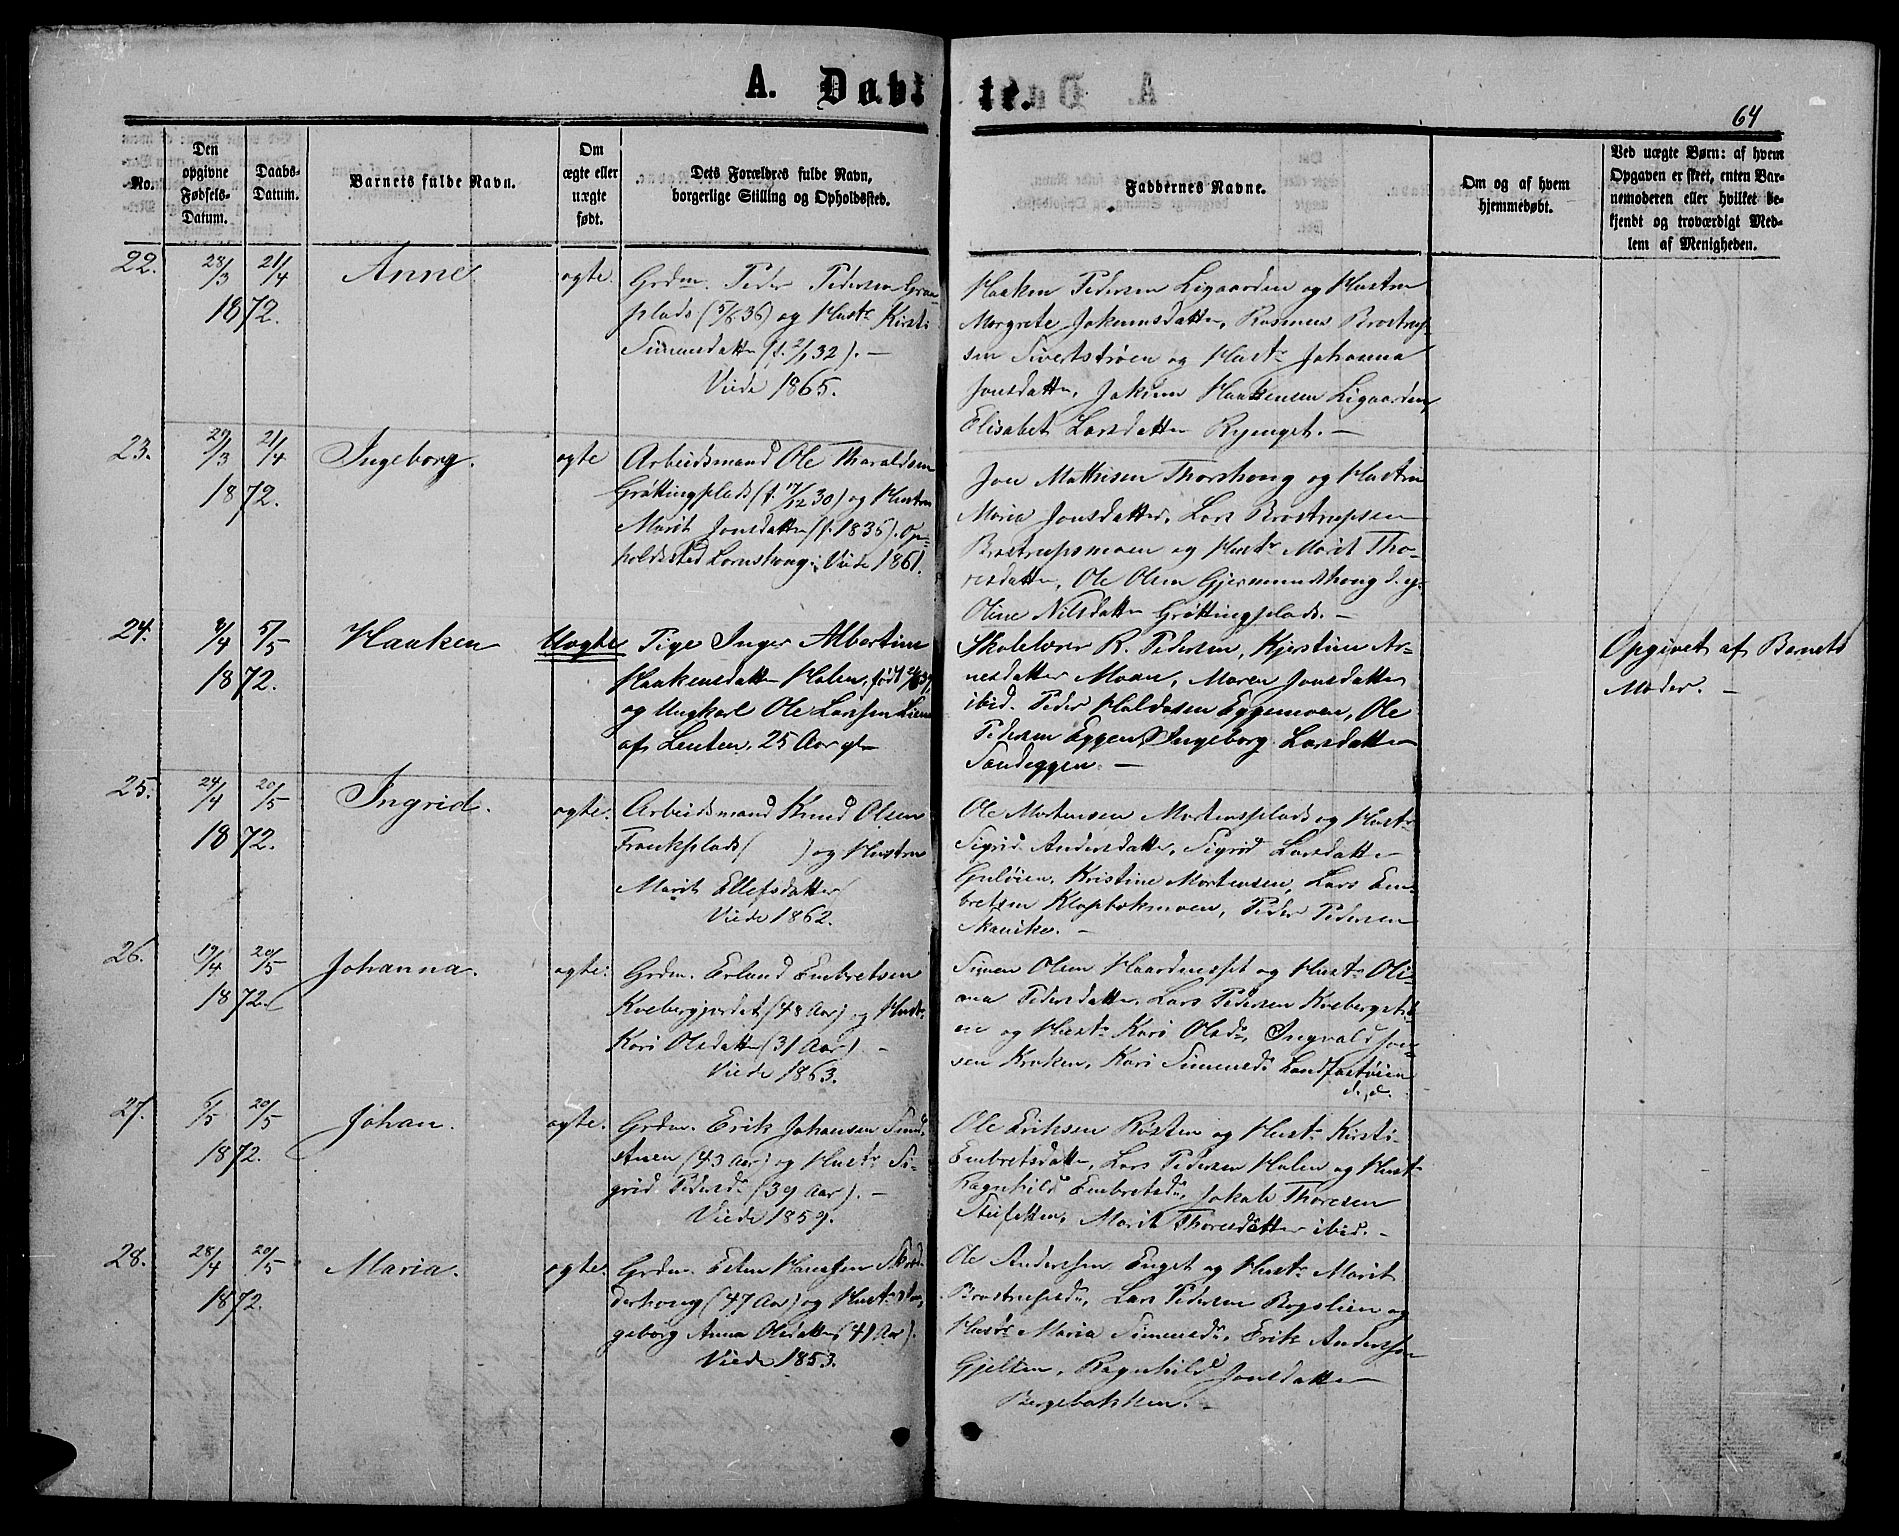 A. Døbte.
64
No.
Den opgivne Fødsels-Datum.
Daabs-Datum.
Barnets fulde Navn.
Om ægte eller uægte født.
Dets Forældres fulde Navn, borgerlige Stilling og Opholdssted.
Faddernes Navne.
Om og af hvem hjemmedøbt.
Ved uægte Børn: af hvem Opgaven er skeet, enten Barnemoderen eller hvilket bekjendt og troværdigt Medlem af Menigheden.
22. 28/3 21/4 1872. Anne. ægte.
Grdm. Peder Pedersen Gran-
plads (5/6 36) og Hustr Kirsti
Simensdatter (f. 2/1 32). –
Viede 1865.
Haaken Pedersen Ligaarden og Hustru
Margrete Jokumsdatter, Rasmus Brostrup-
sen Sivertstrøen og Hustr Johanna
Jonsdatter, Jokum Haakensen Ligaarden,
Elisabet Larsdatter Ryenget. –
23. 27/3 21/4 1872. Ingeborg. ægte
Arbeidsmand Ole Tharaldsen
Grøttingplads (f. 17/12 30) og Hustru
Marit Jonsdatter (f. 1836). Op-
holdssted Lomshong. Viede 1861.
Jon Mathisen Thorshong og Hustru
Maria Jonsdatter, Lars Brostrupsen
Brostrupsmoen og Hustr Marit Tho-
resdatter, Ole Olsen Gjermundshong d. y.
Oline Nilsdatter Grøttingplads. –
24. 8/4 5/5 1872. Haaken Uægte
Pige Inger Albertine
Haakensdatter Holen, født
og Ungkarl Ole Larssen Lien
af Leuten, 25 Aar gl –
Skolelærer R. Pedersen, Kjerstine Ar-
nesdatter Moan, Maren Jonsdatter
ibid. Peder Haldosen Eggemoen, Ole
Pedersen Eggen, Ingeborg Larsdatter
Sandeggen. –
Opgivet af Barnets
Moder. –
25. 24/4 20/5 1872. Ingrid. ægte.
Arbeidsmand Knud Olsen
Fronkplads ( ) og Hustru
Marit Ellefsdatter (
Viede 1862.
Ole Mortensen Mortensplads og Hustr
Sigrid Andersdatter, Sigrid Larsdatter
Guløien, Kristine Mortensen, Lars Em-
bretsen Klopbakmoen, Peder Pedersen
26. 19/4 20/5 1872. Johanna. ægte.
Grdm. Erland Embretsen
Kvebergjordet (48 Aar) og Hustr
Kari Olsdatter (31 Aar). –
Viede 1863.
Simen Olsen Haardnæsset og Hustr Oli-
ana Pedersdatter, Lars Pedersen Kvebergsti-
en og Hustr Kari Olsdr, Ingvald Jon-
sen Kroken, Kari Simensdr Landfastøien
d. y.
27. 6/5 20/5 1872. Johan. ægte.
Grdm. Erik Johansen Sund-
stuen (43 Aar) og Hustr Si-
grid Pedersdr (39 Aar). –
Viede 1859.
Ole Eriksen Røsten og Hustr Kirsti
Embretsdatter, Lars Pedersen Holen og Hustr
Ragnhild Embretsdr, Jokab Thoresen
Steifetten, Marit Thoresdatter ibid. –
28. 28/4 20/5 1872. Maria. ægte.
Grdm. Esten Hansen
derhong (47 Aar) og Hustr In-
geborg Anna Olsdatter (41 Aar).
Viede 1853.
Ole Anderssen Enget og Hustr Marit
Brostrupsdr, Lars Pedersen Bogslien og
Hustr Maria Simensdr, Erik Anderssen
Gjelten, Ragnhild Jonsdatter
Bergebakken. –